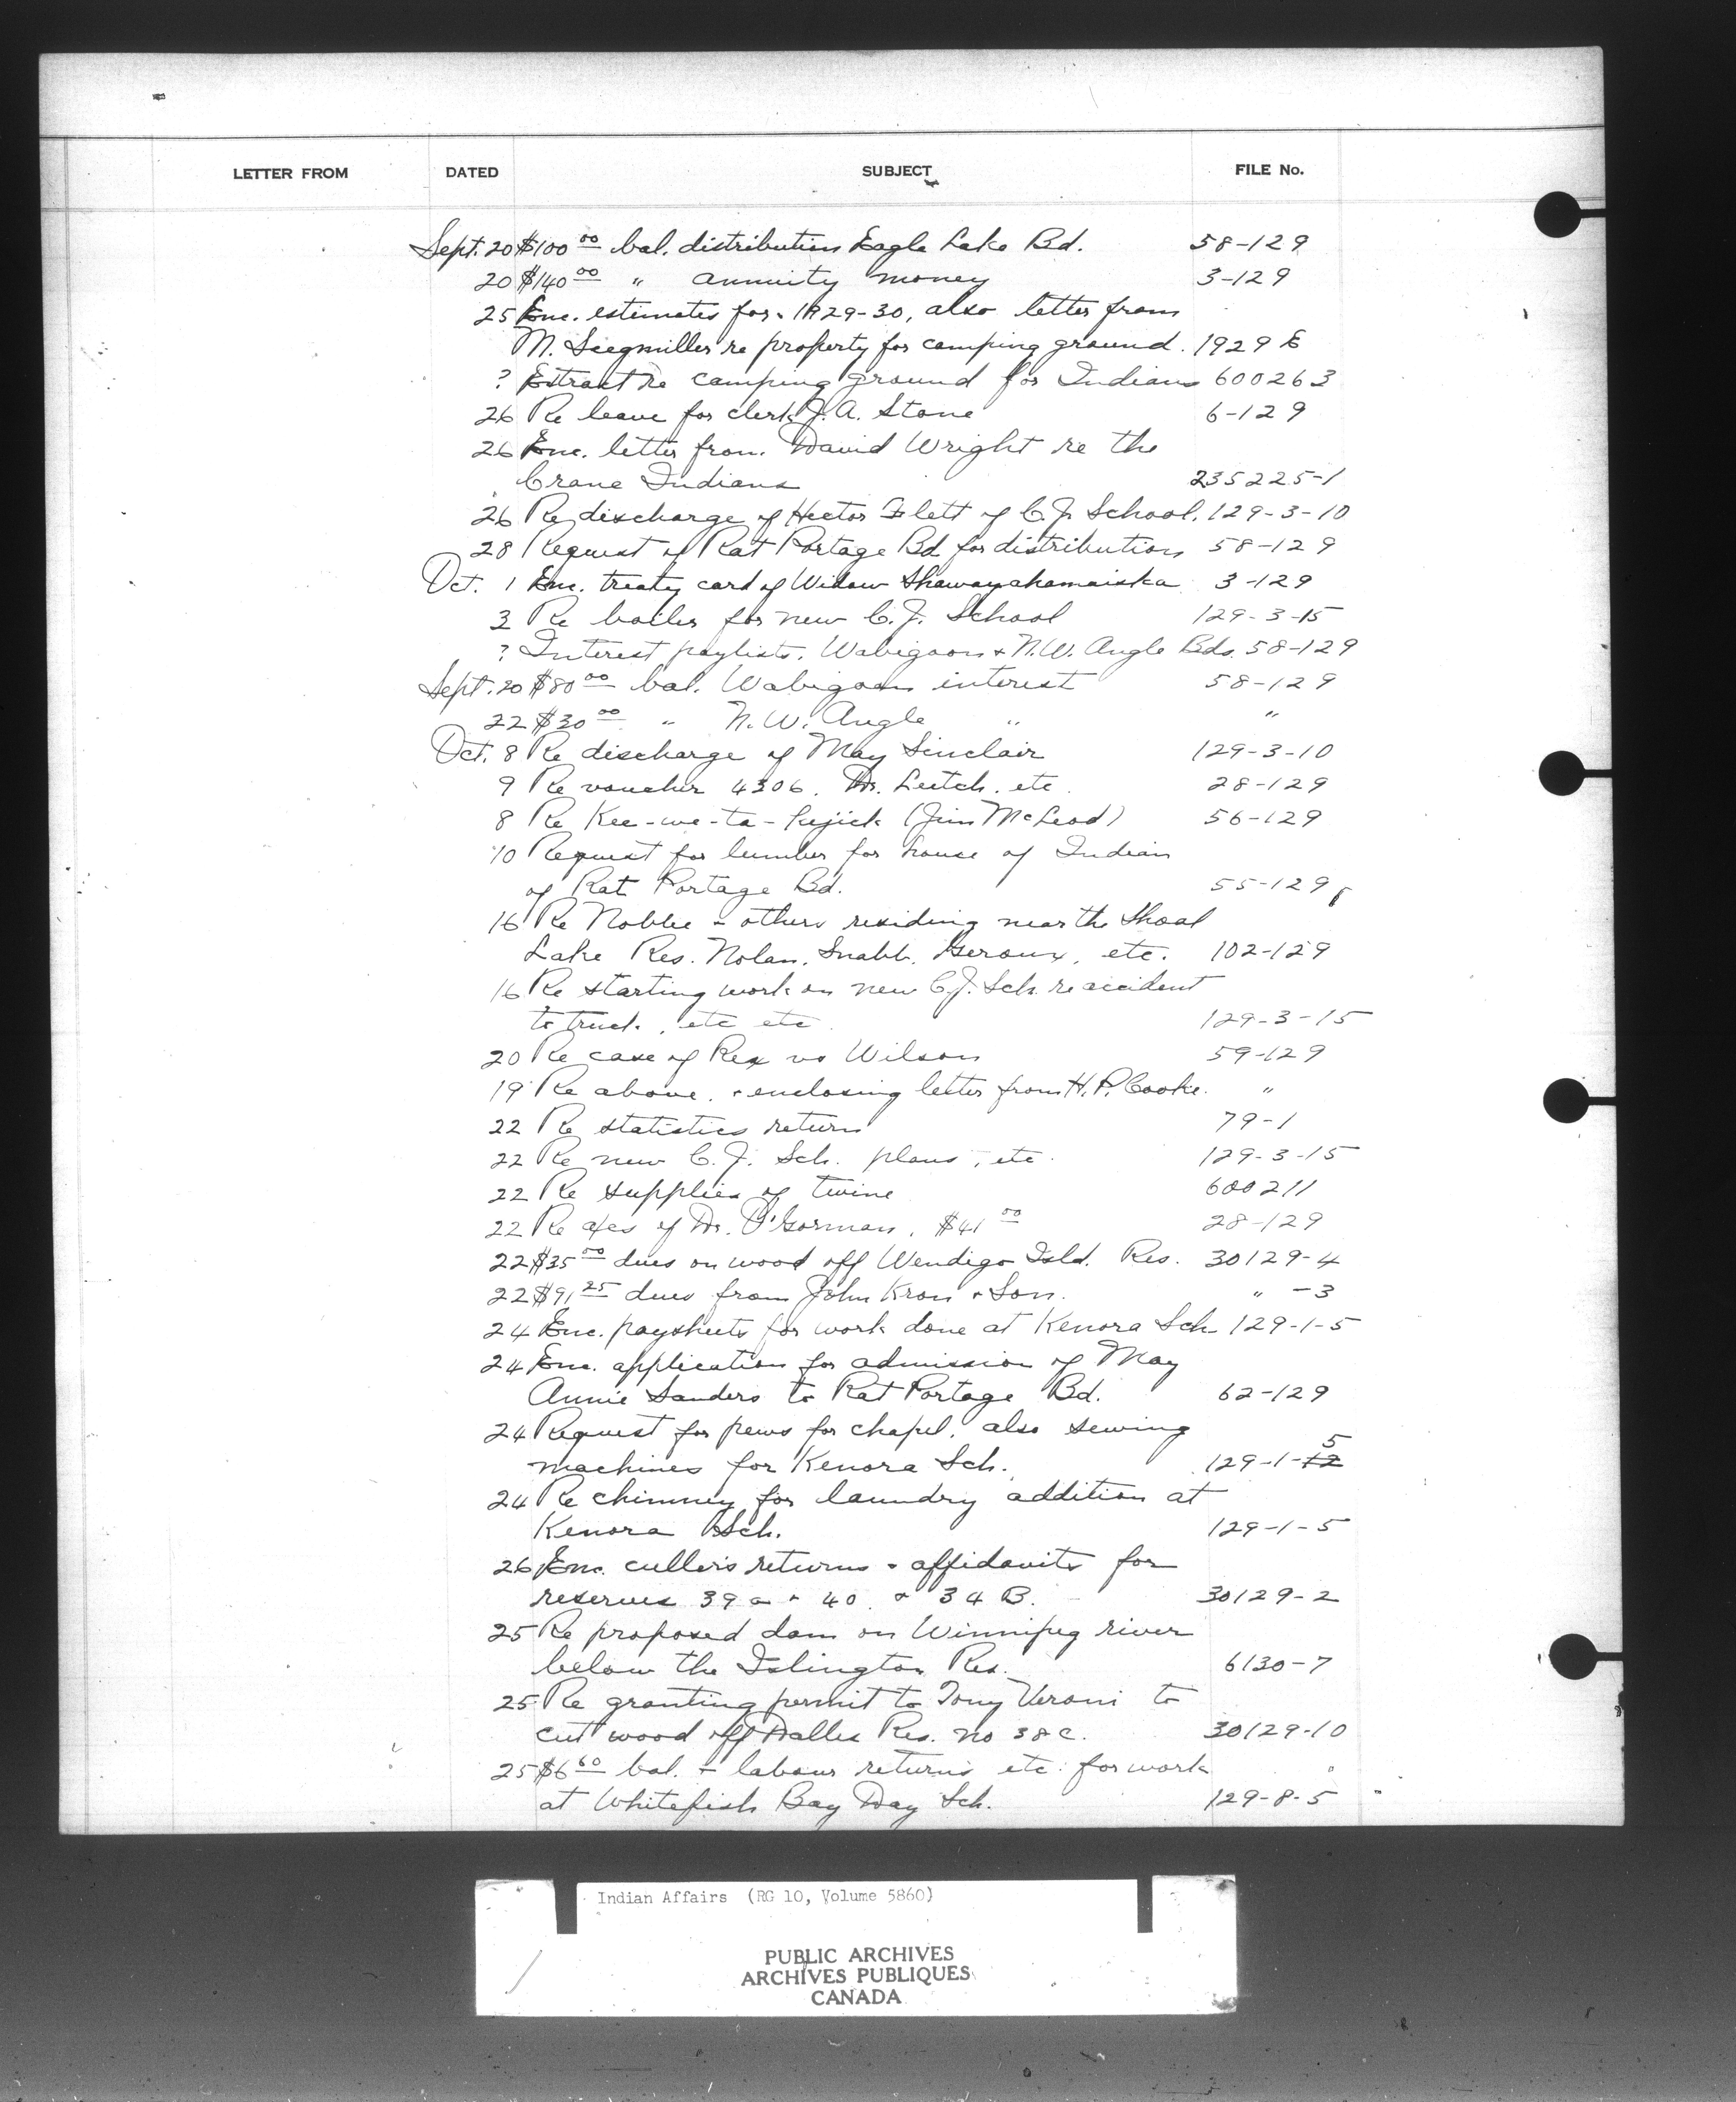 LETTER FROM DATED SUBJECT FILE No.
Sept. 20 $100 00 bal. distribution Eagle Lake Bd. 58-129
20 $140 00 " annuity money 3-129
25 Enc. estimates for 1929-30, also letter from
M. Seegmiller re property for camping ground. 1929 E
? Extract re camping ground for Indians 600263
26 Re leave for clerk J. A. Stone 6-129
26 Enc. letter from David Wright re the
Crane Indians 235225-1
26 Re discharge of Hector Flett of C. J. School. 129-3-10
28 Request of Rat Portage Bd for distribution 58-129
Oct. 1 Enc. treaty card of Widow 3-129
3 Re boiler for new C. J. School 129-3-15
? Interest paylists. Wabigoon & N.W. Angle Bds. 58-129
Sept. 20 $80 00 bal. Wabigoon interest 58-129
22 $30 00 " N. W. Angle " "
Oct. 8 Re discharge of May Sinclair 129-3-10
9 Re voucher 4306. Dr. Leitch. etc. 28-129
8 Re Kee-we-ta- (Jim McLeod) 56-129
10 Request for lumber for house of Indian
of Rat Portage Bd. 55-129
16 Re Noblee & others residing near the Shoal
Lake Res. Nolan, Geroux, etc. 102-129
16 Re starting work on new C. J. Sch. re accident
to truck, etc etc 129-3-15
20 Re case of Rex vs Wilson 59-129
19 Re above. & enclosing letter from H. P. Cooke. "
22 Re statistics return 79-1
22 Re new C. J. Sch. plans, etc. 129-3-15
22 Re supplies of twine 600211
22 Re a/cs of Dr. O'Gorman. $41 00 28-129
22 $35 00 dues on wood off Wendigo Isld. Res. 30129-4
22 $91 25 dues from John Kron & Son. " -3
24 Enc. paysheets for work done at Kenora Sch 129-1-5
24 Enc. application for admission of May
Annie Sanders to Rat Portage Bd. 62-129
24 Request for pews for chapel, also sewing
machines for Kenora Sch. 129-1-12 5
24 Re chimney for laundry addition at
Kenora Sch. 129-1-5
26 Enc. cullers returns & affidavits for
reserves 39 a & 40 & 34 B. 30129-2
25 Re proposed dam on Winnipeg river
below the Islington Res. 6130-7
25 Re granting permit to Tony Veroni to
cut wood off Dalles Res. no 38 C. 30129-10
25 $6 60 bal. & labour returns etc. for work
at Whitefish Bay Day Sch. 129-8-5
Indian Affairs (RG 10, Volume 5860)
PUBLIC ARCHIVES
ARCHIVES PUBLIQUES
CANADA